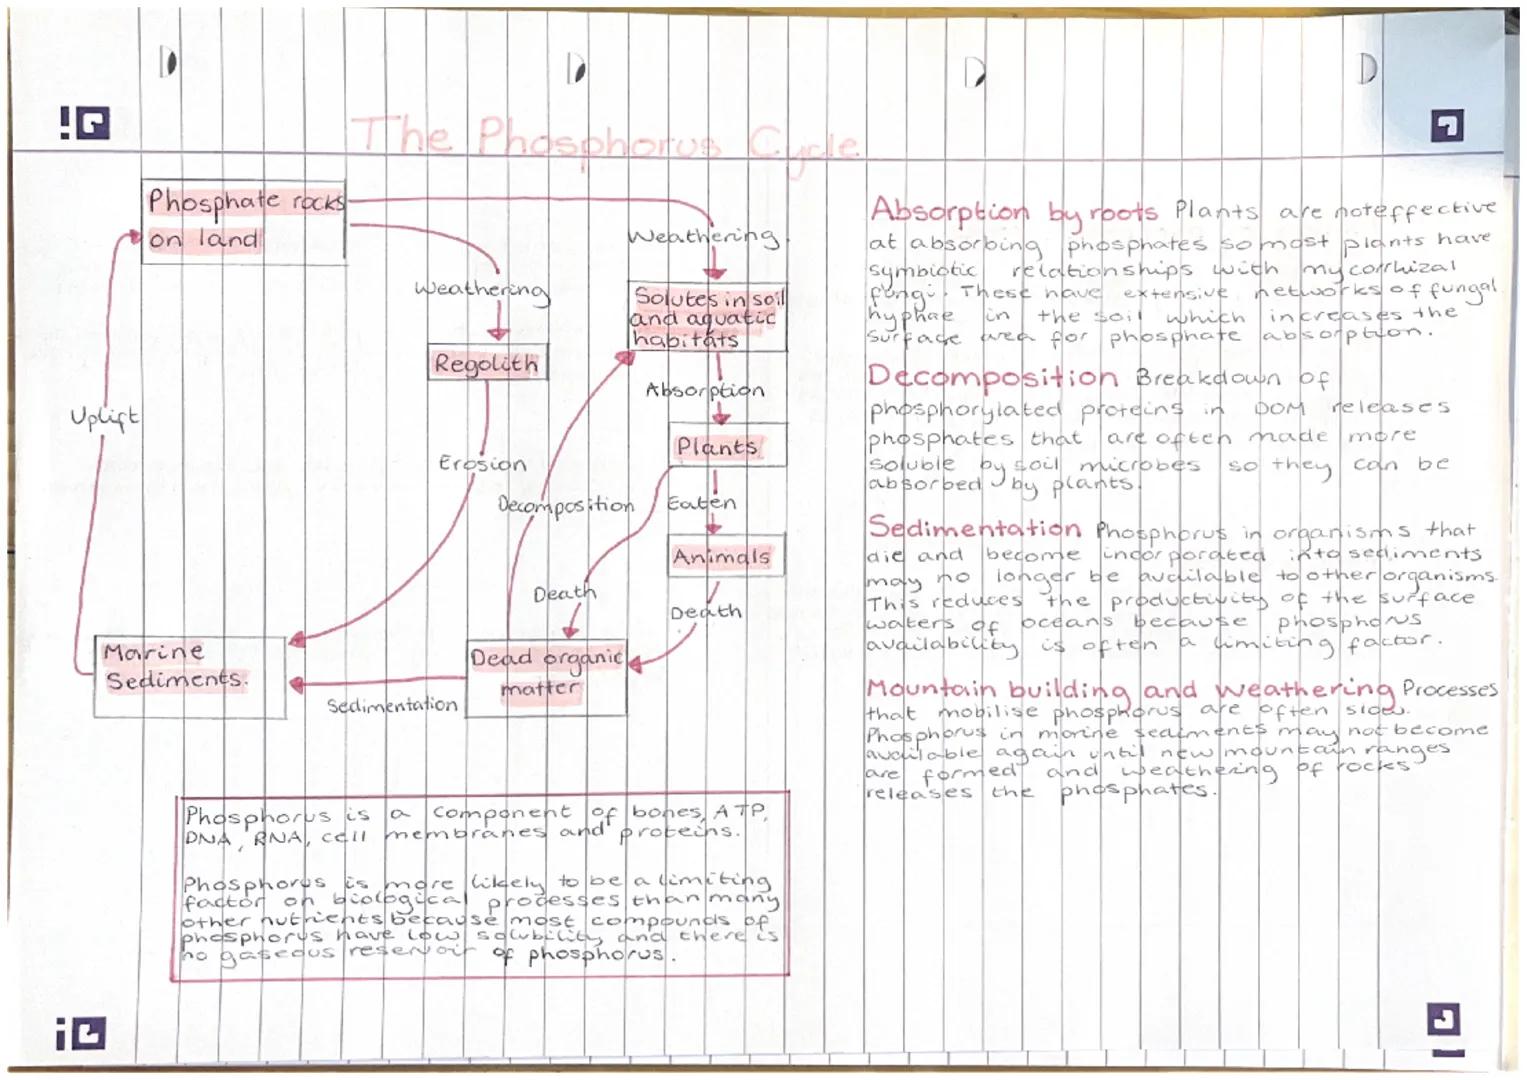 The Phosphorus Cycle
Phosphate rocks
on land
Weathering.
Weathering
Solutes in soil
and aquatic
habitats
Regolith
Absorption
Uplift
Plants
Erosion
Decomposition
Eaten
Animals
Death
Death
Marine
Sediments.
Dead organic
matter
Sedimentation
Phosphorus is a component of bones, ATP,
DNA, RNA, cell membranes and proteins.
Phosphorus is more likely to be a limiting
factor on biological processes than many
other nutrients because most compounds of
phosphorus have low solubility and there is
no gaseous reservoir of phosphorus.
Absorption by roots Plants are not effective
at absorbing phosphates so most plants have
symbiotic relationships with mycorrhizal
fungi. These have extensive networks of fungal
hyphae in the soil which increases the
surface area for phosphate absorption.
Decomposition Breakdown of
phosphorylated proteins in DOM releases
phosphates that are often made more
soluble by soil microbes so they can be
absorbed by plants.
Sedimentation Phosphorus in organisms that
die and become incorporated into sediments
may no longer be available to other organisms.
This reduces the productivity of the surface
waters of oceans because phosphorus
availability is often a limiting factor.
Mountain building and weathering Processes
that mobilise phosphorus are often slow.
Phosphorus in marine sediments may not become
available again until new mountain ranges
are formed and weathering of rocks
releases the phosphates.